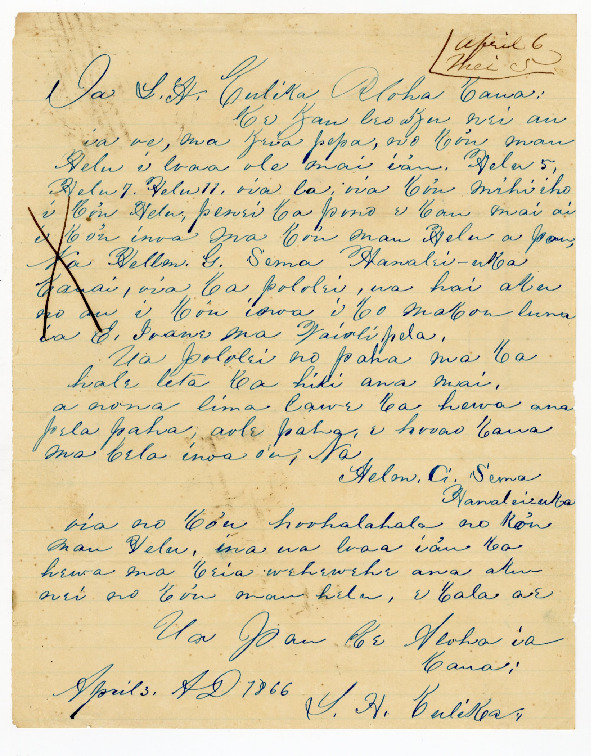 April 6
Mei 5
Ia L. H. Gulika Aloha Kaua:
Ke kau leo aku nei au
ia oe, ma keia pepa, no ko'u mau
Helu i loaa ole mai ia'u. Helu 5,
Helu 7. Helu 11. oia la, oia ko'u mihiiho
i ko'u Helu, penei ka pono e kau mai ai
i ko'u inoa ma ko'u mau Helu a pau,
Na Hellm. G. Sema Hanalei-uka
Kauai, oia ka pololei, ua hai aku
no au i ko'u inoa i ko makou luna
ia E. Ioane ma Vaioli pela.
Ua pololei no paha ma ka
hale leta ka hiki ana mai,
a nona lima lawe ka hewa ana
pela paha, aole paha, e hooao kaua
ma kela inoa o'u, Na
Helm. G. Sema
Hanalei uka
oia no ko'u hoohalahala no ko'u
mau Helu, ina ua loaa ia'u ka
hewa ma keia wehewehe ana aku
nei no ko'u mau helu, e kala ae
Ua Pau Ke Aloha ia
Kaua:
April 3. AD 1866
L. H. Kulika,